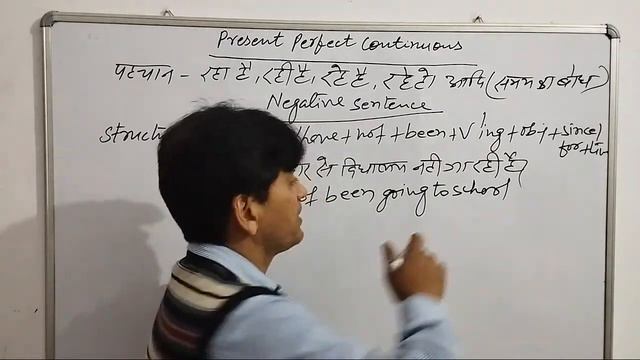 Present Perfect Continuous
पहचान - रहा है, रही है, रहे है, रहे हो आदि (समय का बोध)
Negative sentence
have + not + been + V ing + obj + since/
for + tim
से विद्यालय नहीं जा रही है।
been going to school